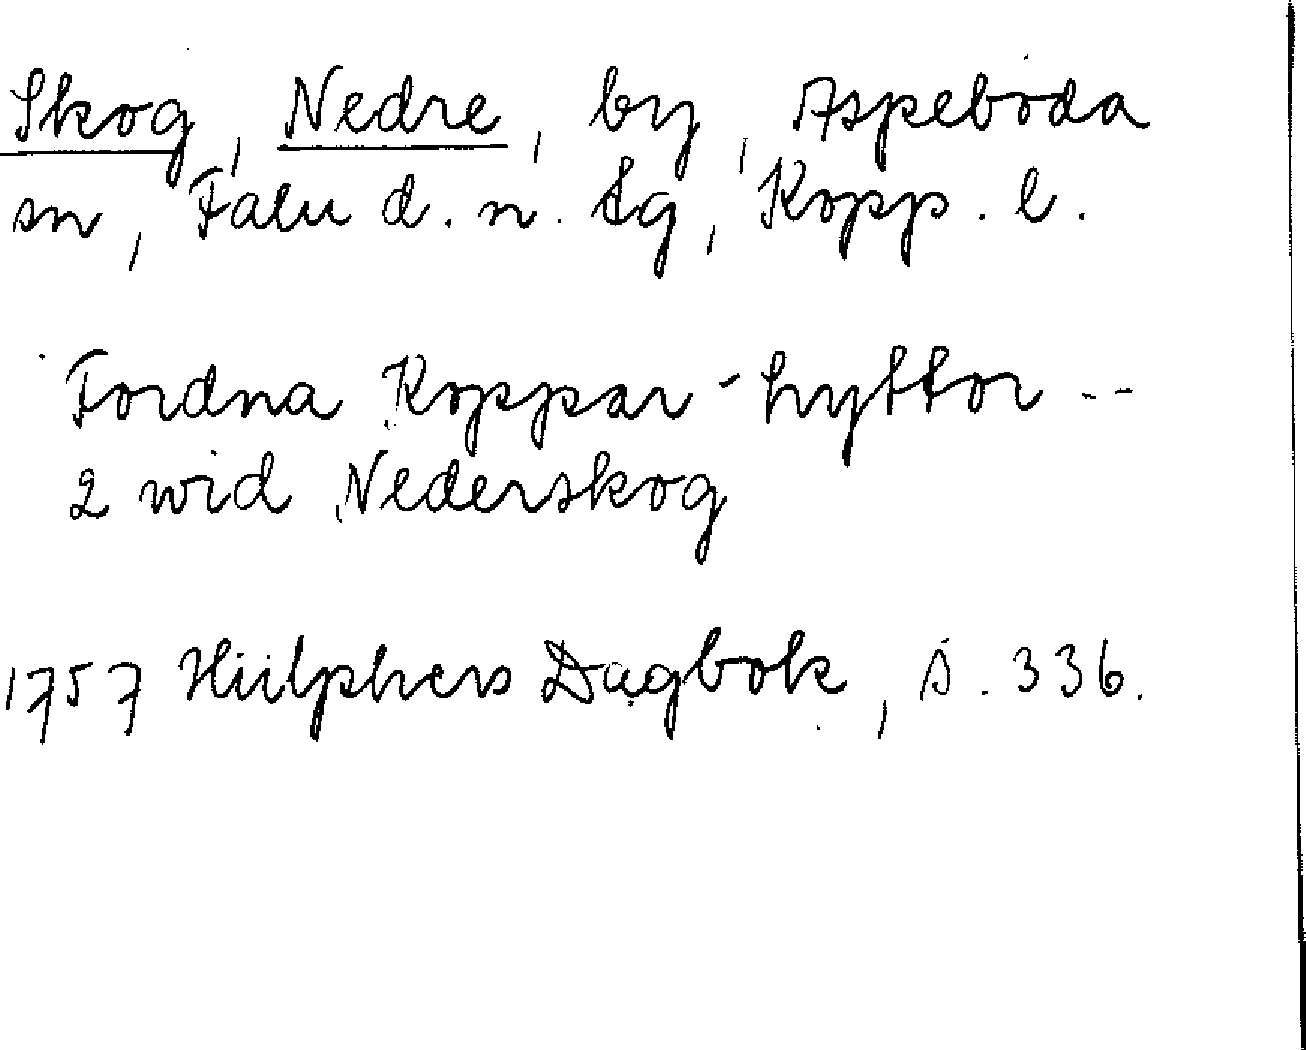 Skog, Nedre, by, Aspeboda
sn, Falu d. n. tg, Kopp. l.
Fordna Koppar-hyttor --
2 wid Nederskog
1757 Hülphers Dagbok, s. 336.